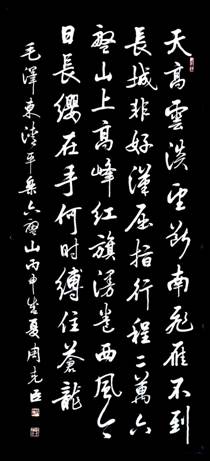 天高雲淡望斷南飛雁不到
長城非好漢屈指行程二萬六
盤山上高峰紅旗漫卷西風今
日長纓在手何時縛住蒼龍
毛澤東清平樂六盤山丙申夏周